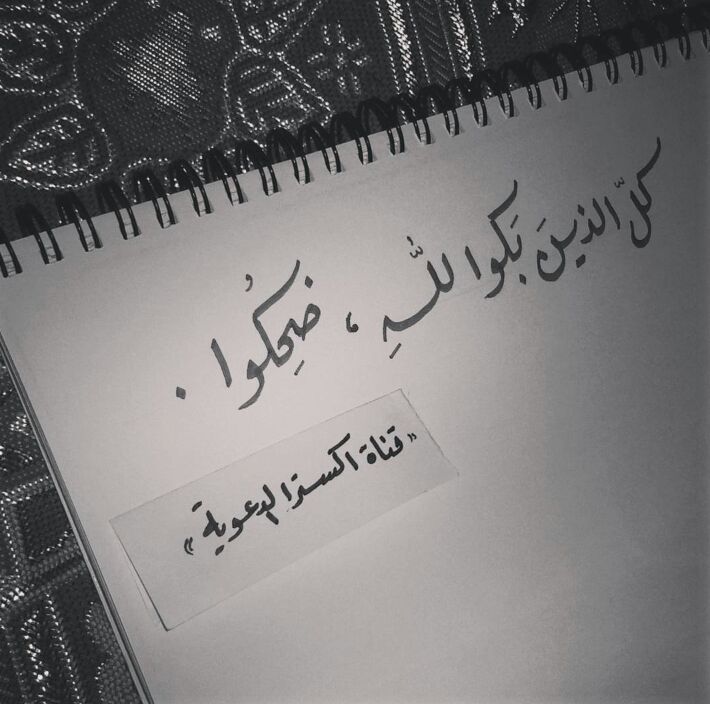 كلّ الذينَ بَكوا للّهِ ، ضحِكُوا .
« قناة اكسترا الدعوية »